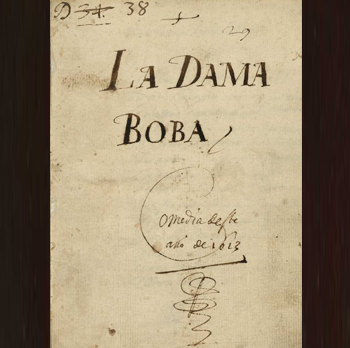 D 34. 38
LA DAMA
BOBA
Comedia deste
año de 1613